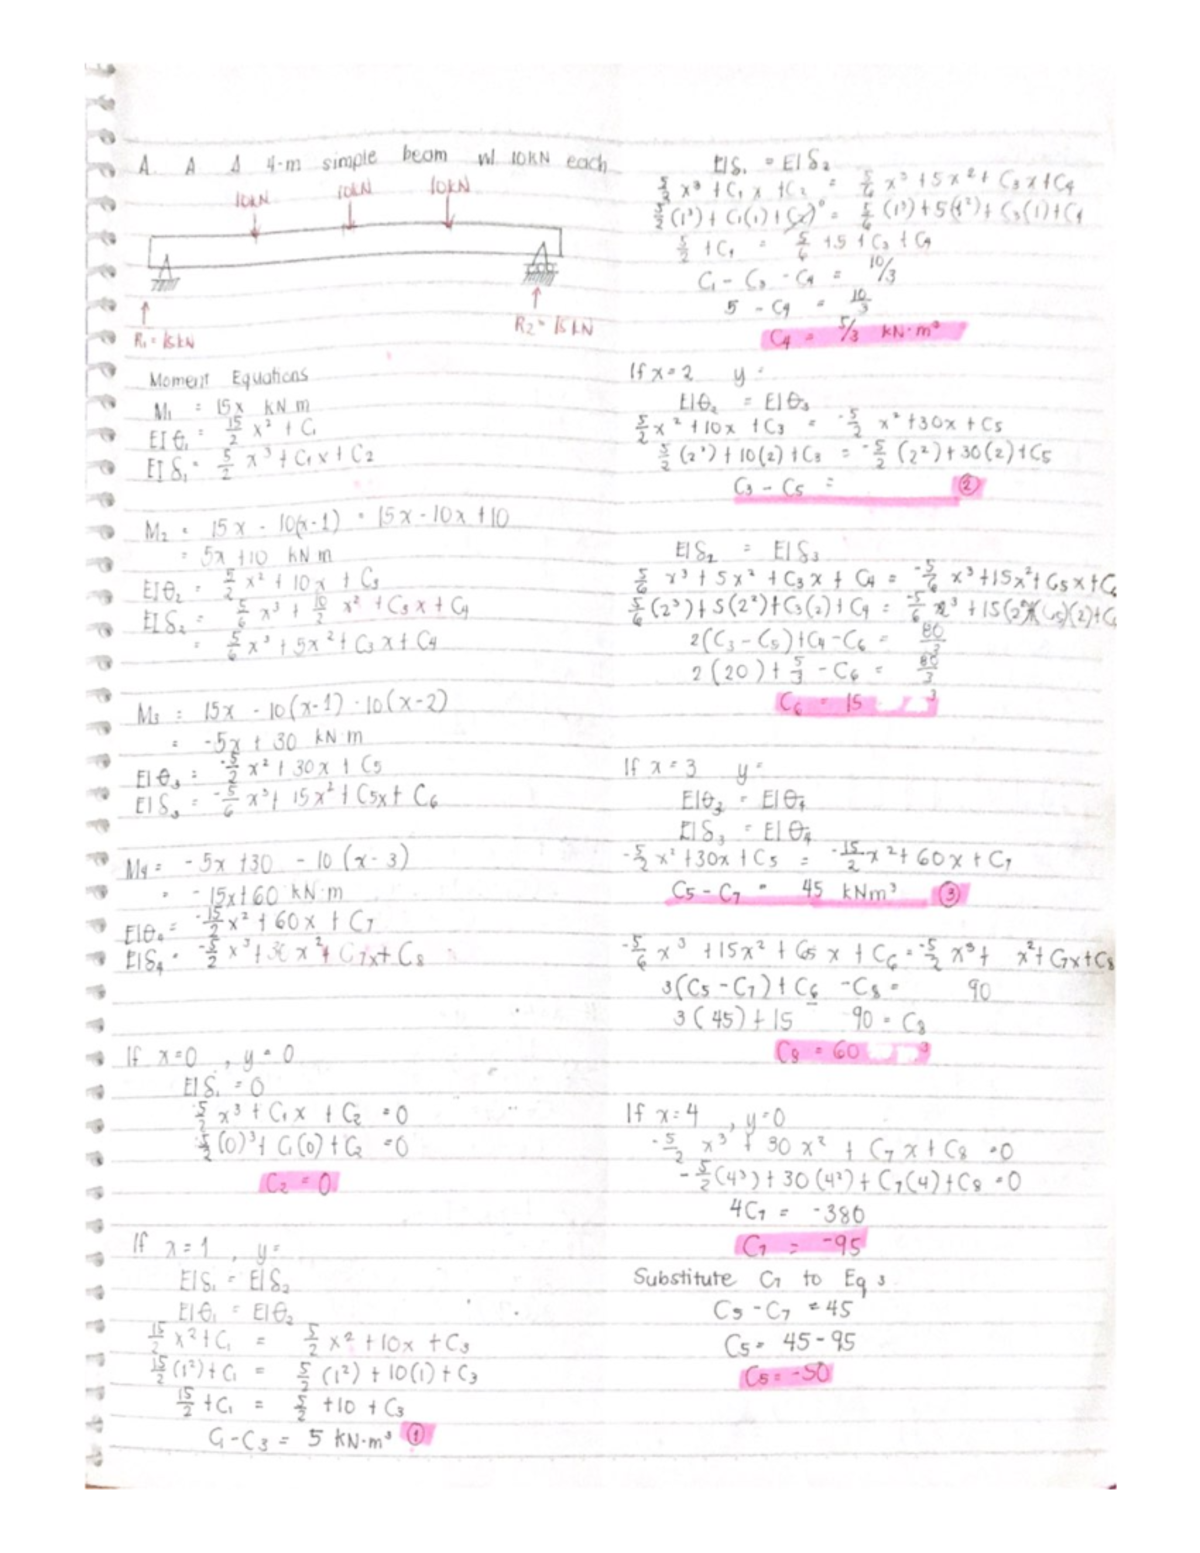 A. A 4-m simple beam w/ 10kN each
10kN 10kN 10kN
R₁ = 15kN
R₂ = 15kN
Moment Equations
M₁ = 15x kN m
EIθ₁ = 15/2 x² + C₁
EIS₁ = 5/2 x³ + C₁x + C₂
M₂ = 15x - 10(x-1) = 15x - 10x + 10
= 5x + 10 kN m
EIθ₂ = 5/2 x² + 10x + C₃
EIS₂ = 5/6 x³ + 10/2 x² + C₃x + C₄
= 5/6 x³ + 5x² + C₃x + C₄
M₃ = 15x - 10(x-1) - 10(x-2)
= -5x + 30 kN·m
EIθ₃ = -5/2 x² + 30x + C₅
EIS₃ = -5/6 x³ + 15x² + C₅x + C₆
M₄ = -5x + 30 - 10(x-3)
= -15x + 60 kN·m
EIθ₄ = -15/2 x² + 60x + C₇
EIS₄ = -5/2 x³ + 30x² + C₇x + C₈
If x=0, y=0
EIS₁ = 0
5/2 x³ + C₁x + C₂ = 0
5/2 (0)³ + C₁(0) + C₂ = 0
C₂ = 0
If x=1, y=
EIS₁ = EIS₂
EIθ₁ = EIθ₂
15/2 x² + C₁ = 5/2 x² + 10x + C₃
15/2 (1²) + C₁ = 5/2 (1²) + 10(1) + C₃
15/2 + C₁ = 5/2 + 10 + C₃
C₁ - C₃ = 5 kN·m³ ①
EIS₁ = EIS₂
5/2 x³ + C₁x + C₂ = 5/6 x³ + 5x² + C₃x + C₄
5/2 (1³) + C₁(1) + C₂⁰ = 5/6 (1³) + 5(1²) + C₃(1) + C₄
5/2 + C₁ = 5/6 + 5 + C₃ + C₄
C₁ - C₃ - C₄ = 10/3
5 - C₄ = 10/3
C₄ = 5/3 kN·m³
If x=2 y=
EIθ₂ = EIθ₃
5/2 x² + 10x + C₃ = -5/2 x² + 30x + C₅
5/2 (2²) + 10(2) + C₃ = -5/2 (2²) + 30(2) + C₅
C₃ - C₅ = ②
EIS₂ = EIS₃
5/6 x³ + 5x² + C₃x + C₄ = -5/6 x³ + 15x² + C₅x + C₆
5/6 (2³) + 5(2²) + C₃(2) + C₄ = -5/6 2³ + 15(2²)(C₅)(2) + C₆
2(C₃ - C₅) + C₄ - C₆ = 80/3
2(20) + 5/3 - C₆ = 80/3
C₆ = 15 ³
If x=3 y=
EIθ₃ = EIθ₄
EIS₃ = EIθ₄
-5/2 x² + 30x + C₅ = -15/2 x² + 60x + C₇
C₅ - C₇ = 45 kNm³ ③
-5/6 x³ + 15x² + C₅x + C₆ = -5/2 x³ + x² + C₇x + C₈
3(C₅ - C₇) + C₆ - C₈ = 90
3(45) + 15 90 = C₈
C₈ = 60 ³
If x=4, y=0
-5/2 x³ + 30x² + C₇x + C₈ = 0
-5/2 (4³) + 30(4²) + C₇(4) + C₈ = 0
4C₇ = -380
C₇ = -95
Substitute C₇ to Eq 3
C₅ - C₇ = 45
C₅ = 45 - 95
C₅ = -50